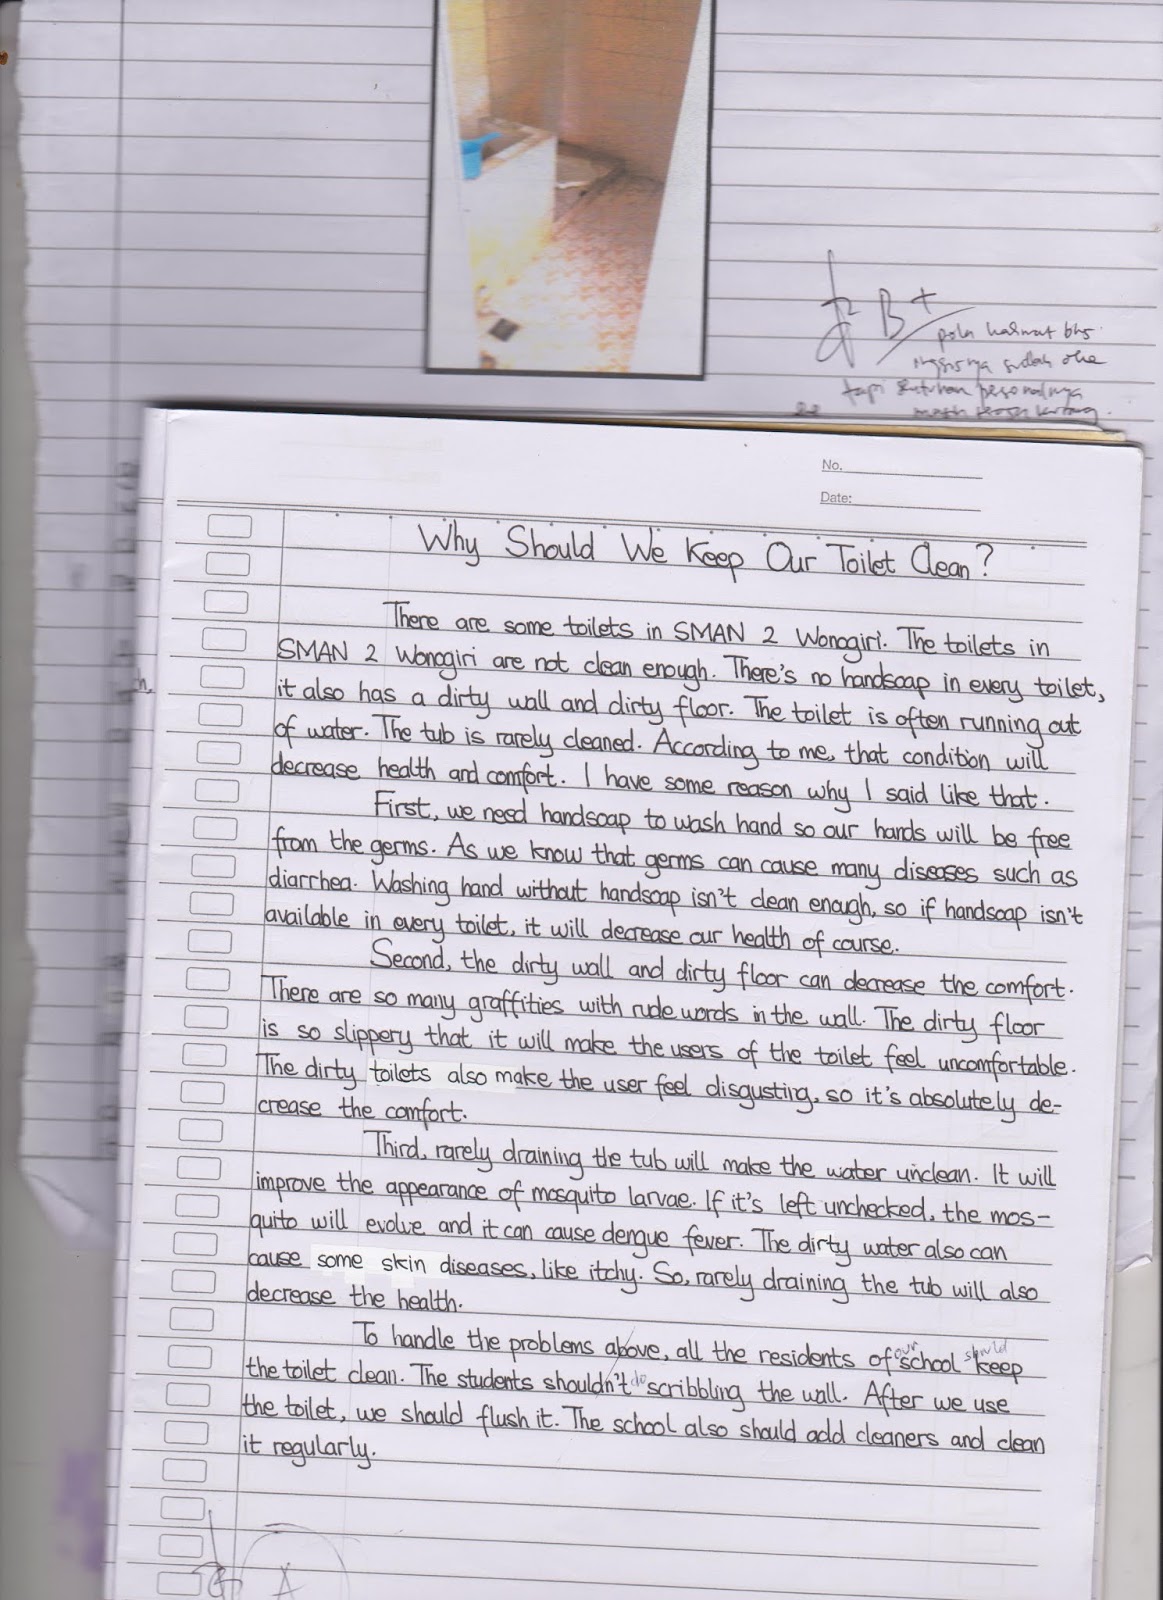 B+
pola kalimat bhs
inggrisnya sudah oke
tapi sentuhan personalnya
masih terasa kurang.
No.
Date:
Why Should We Keep Our Toilet Clean?
There are some toilets in SMAN 2 Wonogiri. The toilets in
SMAN 2 Wonogiri are not clean enough. There's no handsoap in every toilet,
it also has a dirty wall and dirty floor. The toilet is often running out
of water. The tub is rarely cleaned. According to me, that condition will
decrease health and comfort. I have some reason why I said like that.
First, we need handsoap to wash hand so our hands will be free
from the germs. As we know that germs can cause many diseases such as
diarrhea. Washing hand without handsoap isn't clean enough, so if handsoap isn't
available in every toilet, it will decrease our health of course.
Second, the dirty wall and dirty floor can decrease the comfort.
There are so many graffities with rude words in the wall. The dirty floor
is so slippery that it will make the users of the toilet feel uncomfortable.
The dirty toilets also make the user feel disgusting, so it's absolutely de-
crease the comfort.
Third, rarely draining the tub will make the water unclean. It will
improve the appearance of mosquito larvae. If it's left unchecked, the mos-
quito will evolve and it can cause dengue fever. The dirty water also can
cause some skin diseases, like itchy. So, rarely draining the tub will also
decrease the health.
To handle the problems above, all the residents of our school should keep
the toilet clean. The students shouldn't do scribbling the wall. After we use
the toilet, we should flush it. The school also should add cleaners and clean
it regularly.
A